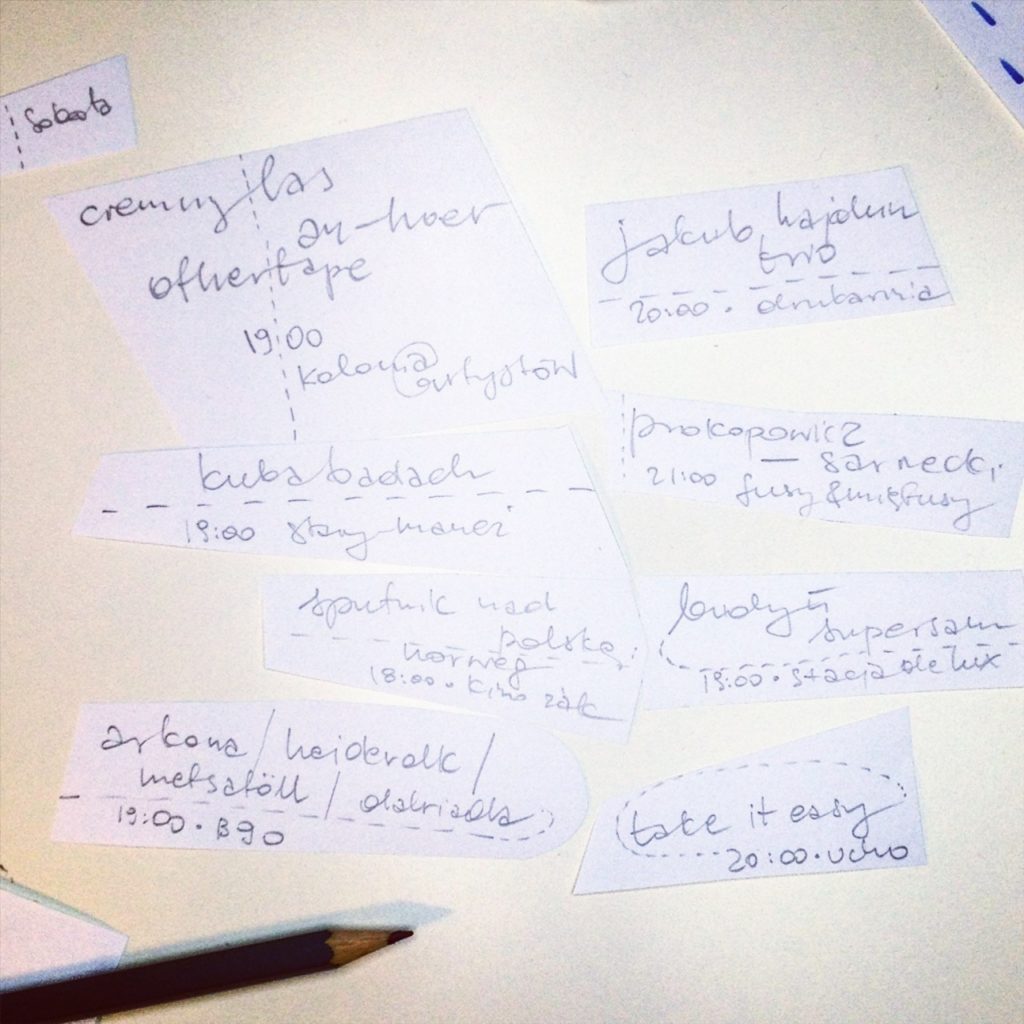 sobota
cremny las
an-hoer
othertape
19:00
kolonia artystów
kuba badach
19:00 stary maneż
sputnik nad
polską:
norweg
18:00 · kino żak
arkona / heidevolk /
metsatöll / dalriada
19:00 · B90
jakub hajdun
trio
20:00 · drukarnia
prokopowicz
— sarnecki
21:00 fusy & nie fusy
budyń
supersam
19:00 · stacja de lux
take it easy
20:00 · ucho